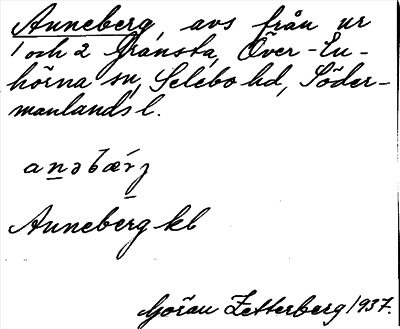 Anneberg, avs från ur
1 och 2 Gränsta, Över-En-
hörna sn, Selebo hd, Söder-
manlands l.
anəbærj
Anneberg kl
Göran Zetterberg 1937.